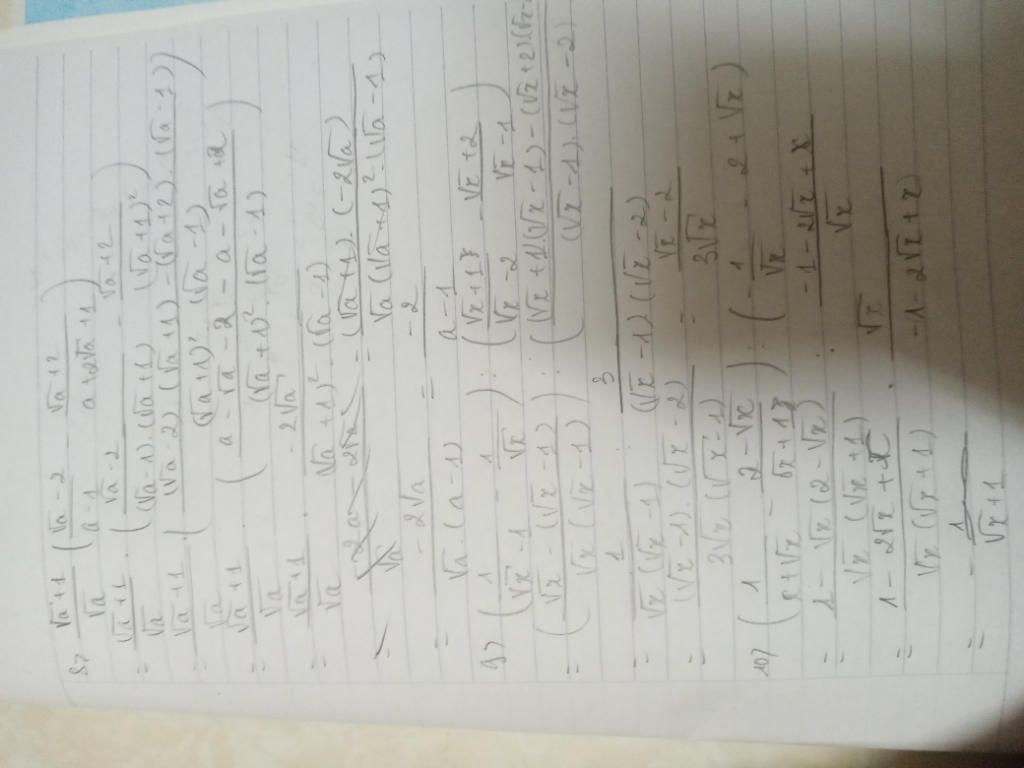 8> (√a+1)/√a · ((√a-2)/(a-1) - (√a+2)/(a+2√a+1))
= (√a+1)/√a · ((√a-2)/((√a-1).(√a+1)) - (√a+2)/(√a+1)²)
= (√a+1)/√a · (((√a-2)(√a+1)-(√a+2).(√a-1))/((√a+1)²(√a-1)))
= (√a+1)/√a · ((a-√a-2-a-√a+2)/((√a+1)².(√a-1)))
= (√a+1)/√a · (-2√a)/((√a+1)².(√a-1))
= ((√a+1).(-2√a))/(√a(√a+1)².(√a-1))
= (-2√a)/(√a.(a-1)) = (-2)/(a-1)
9> (1/(√x-1) - 1/√x) : ((√x+1)/(√x-2) - (√x+2)/(√x-1))
= ((√x-(√x-1))/(√x(√x-1))) : (((√x+1)(√x-1)-(√x+2)(√x-
(√x-1).(√x-2))
= 1/(√x(√x-1)) : 3/((√x-1)(√x-2))
= ((√x-1).(√x-2))/(3√x(√x-1)) = (√x-2)/(3√x)
10> (1/(x+√x) - (2-√x)/(√x+1)) : (1/√x - 2+√x)
= (1-√x(2-√x))/(√x(√x+1)) : (1-2√x+x)/√x
= (1-2√x+x)/(√x(√x+1)) · √x/(1-2√x+x)
= 1/(√x+1)